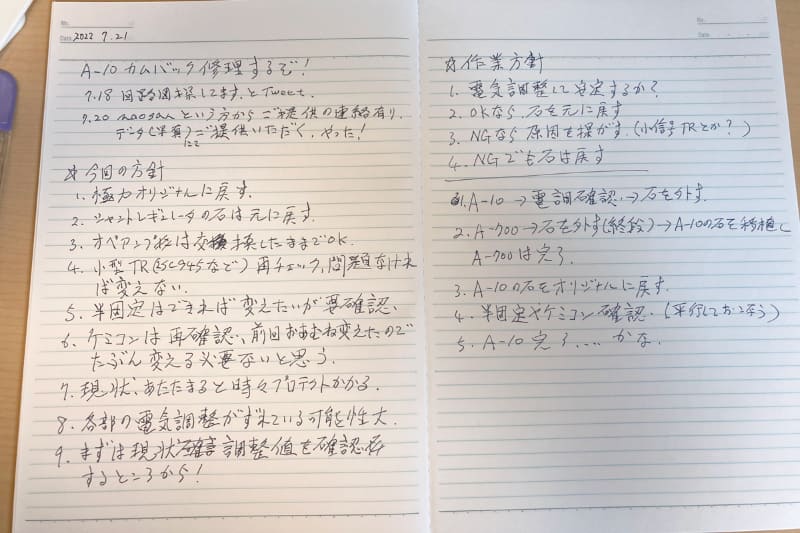 No.
Date 2022 7.21
A-10 カムバック修理するぞ!
7.18 回路図探してます。とTweet.
7.20 naosan という方からご提供の連絡有り、
データ(写真)にてご提供いただく、やった!
☆ 今回の方針
1. 極力オリジナルに戻す.
2. シャントレギュレータの石は元に戻す.
3. オペアンプ板は交換したままでOK.
4. 小型TR(2SC945など)再チェック、問題なければ
ば変えない.
5. 半固定はできれば変えたいが要確認、
6. ケミコンは再確認、前回おおむね変えたので
たぶん変える必要ないと思う.
7. 現状、あたたまると時々プロテクトかかる.
8. 各部の電気調整がずれている可能性大.
9. まずは現状確認 調整値を確認
するところから!
No.
Date
☆ 作業方針
1. 電気調整して安定するか?
2. OKなら 石を元に戻す
3. NGなら 原因を探がす.(小信号TRとか?)
4. NGでも石は戻す
1. A-10 → 電調確認 → 石を外す.
2. A-700 → 石を外す(終段) → A-10の石を移植し
A-700は完了.
3. A-10の石をオリジナルに戻す.
4. 半固定やケミコン確認.(平行しておこなう)
5. A-10 完了.... かな.